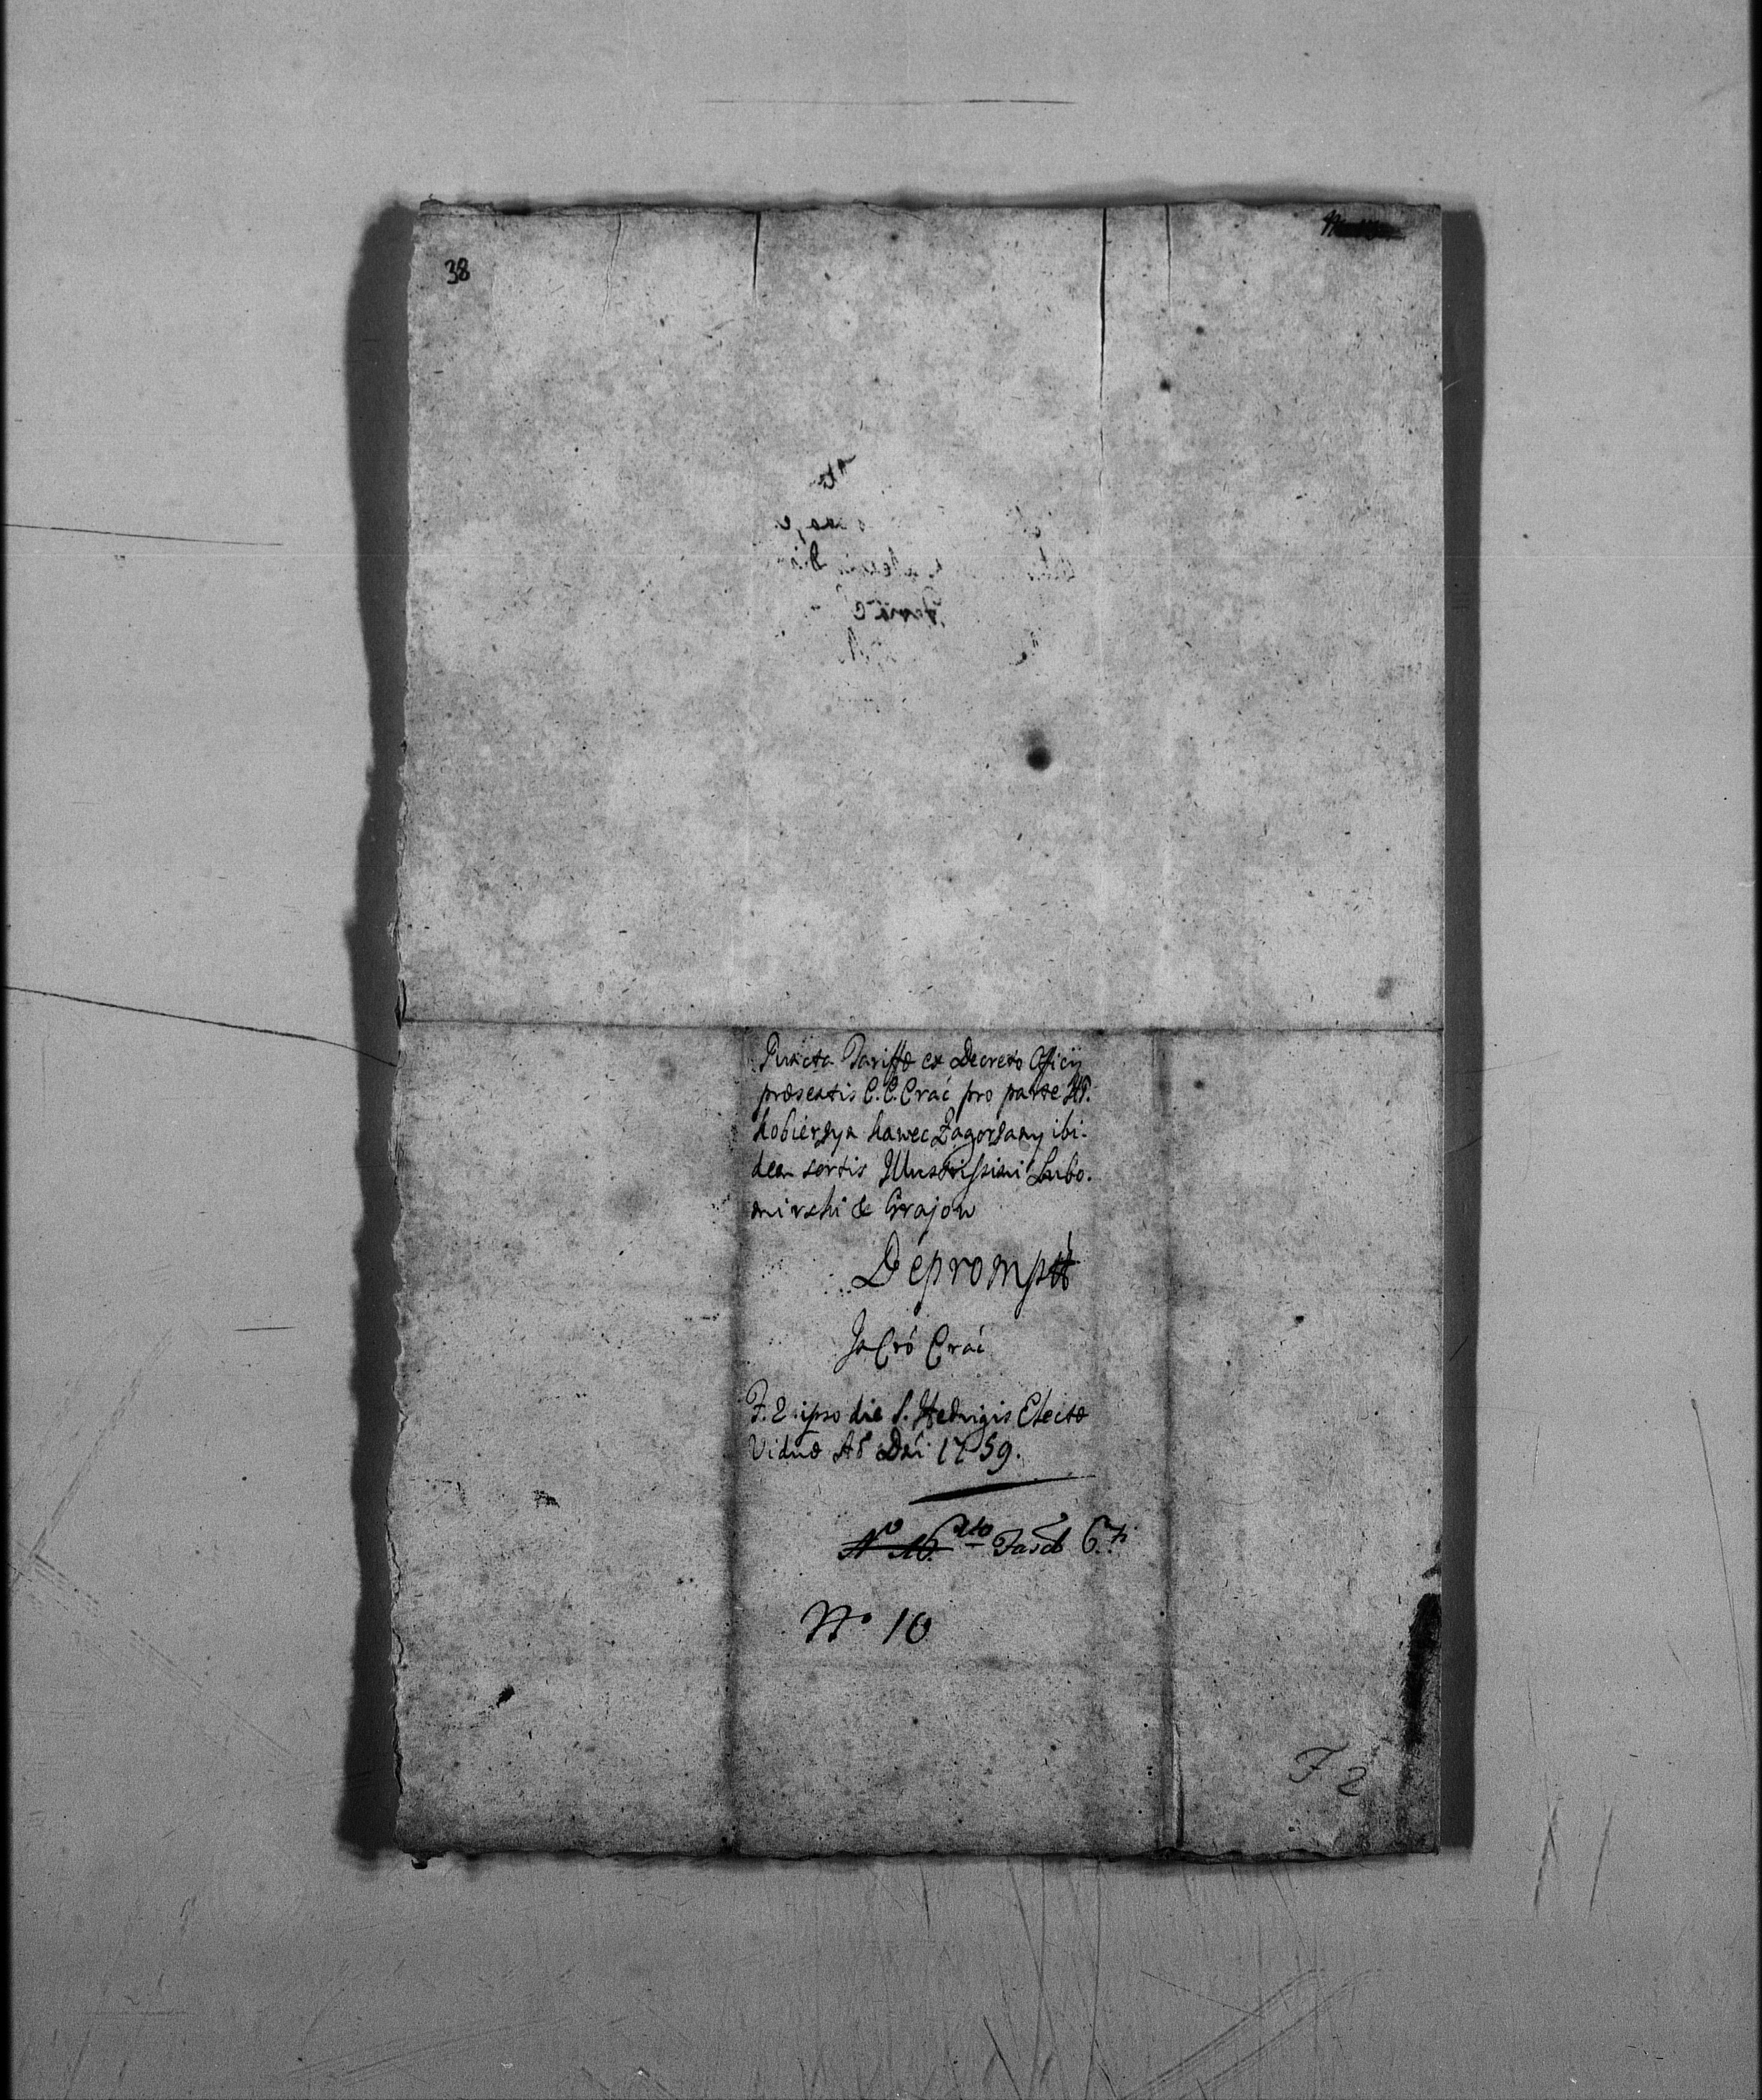 38
Puncta Tariffæ ex Decreto Officij
præsentis C. C. Crac̃ pro parte
Kobierzyn Zagorzany ibi-
dem sortis Illustrissimi Lubo-
mirski & Grajow
Deprompta
Crac̃
F. 2 ipso die S. Hedvigis Electæ
Viduæ Aõ Dñi 1759.
Nº 16. Fasc 6.
Nº 10
F 2